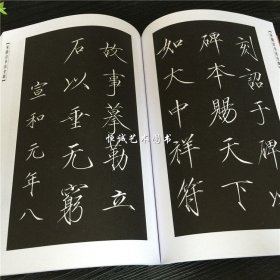 刻詔于碑以
碑本賜天下
如大中祥符
故事摹勒立
石以垂无窮
宣和元年八
艺术图书